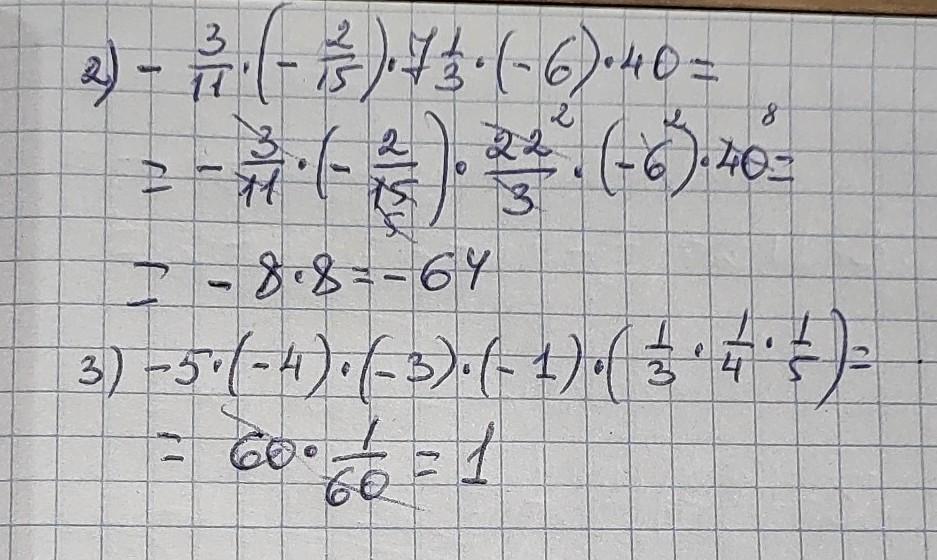 2) - 3/11 · (- 2/15) · 7 1/3 · (-6) · 40 =
= - 3/11 · (- 2/15 5) · 22/3 2 · (-6 2) · 40 8 =
= - 8 · 8 = - 64
3) -5 · (-4) · (-3) · (-1) · (1/3 · 1/4 · 1/5) =
= 60 · 1/60 = 1